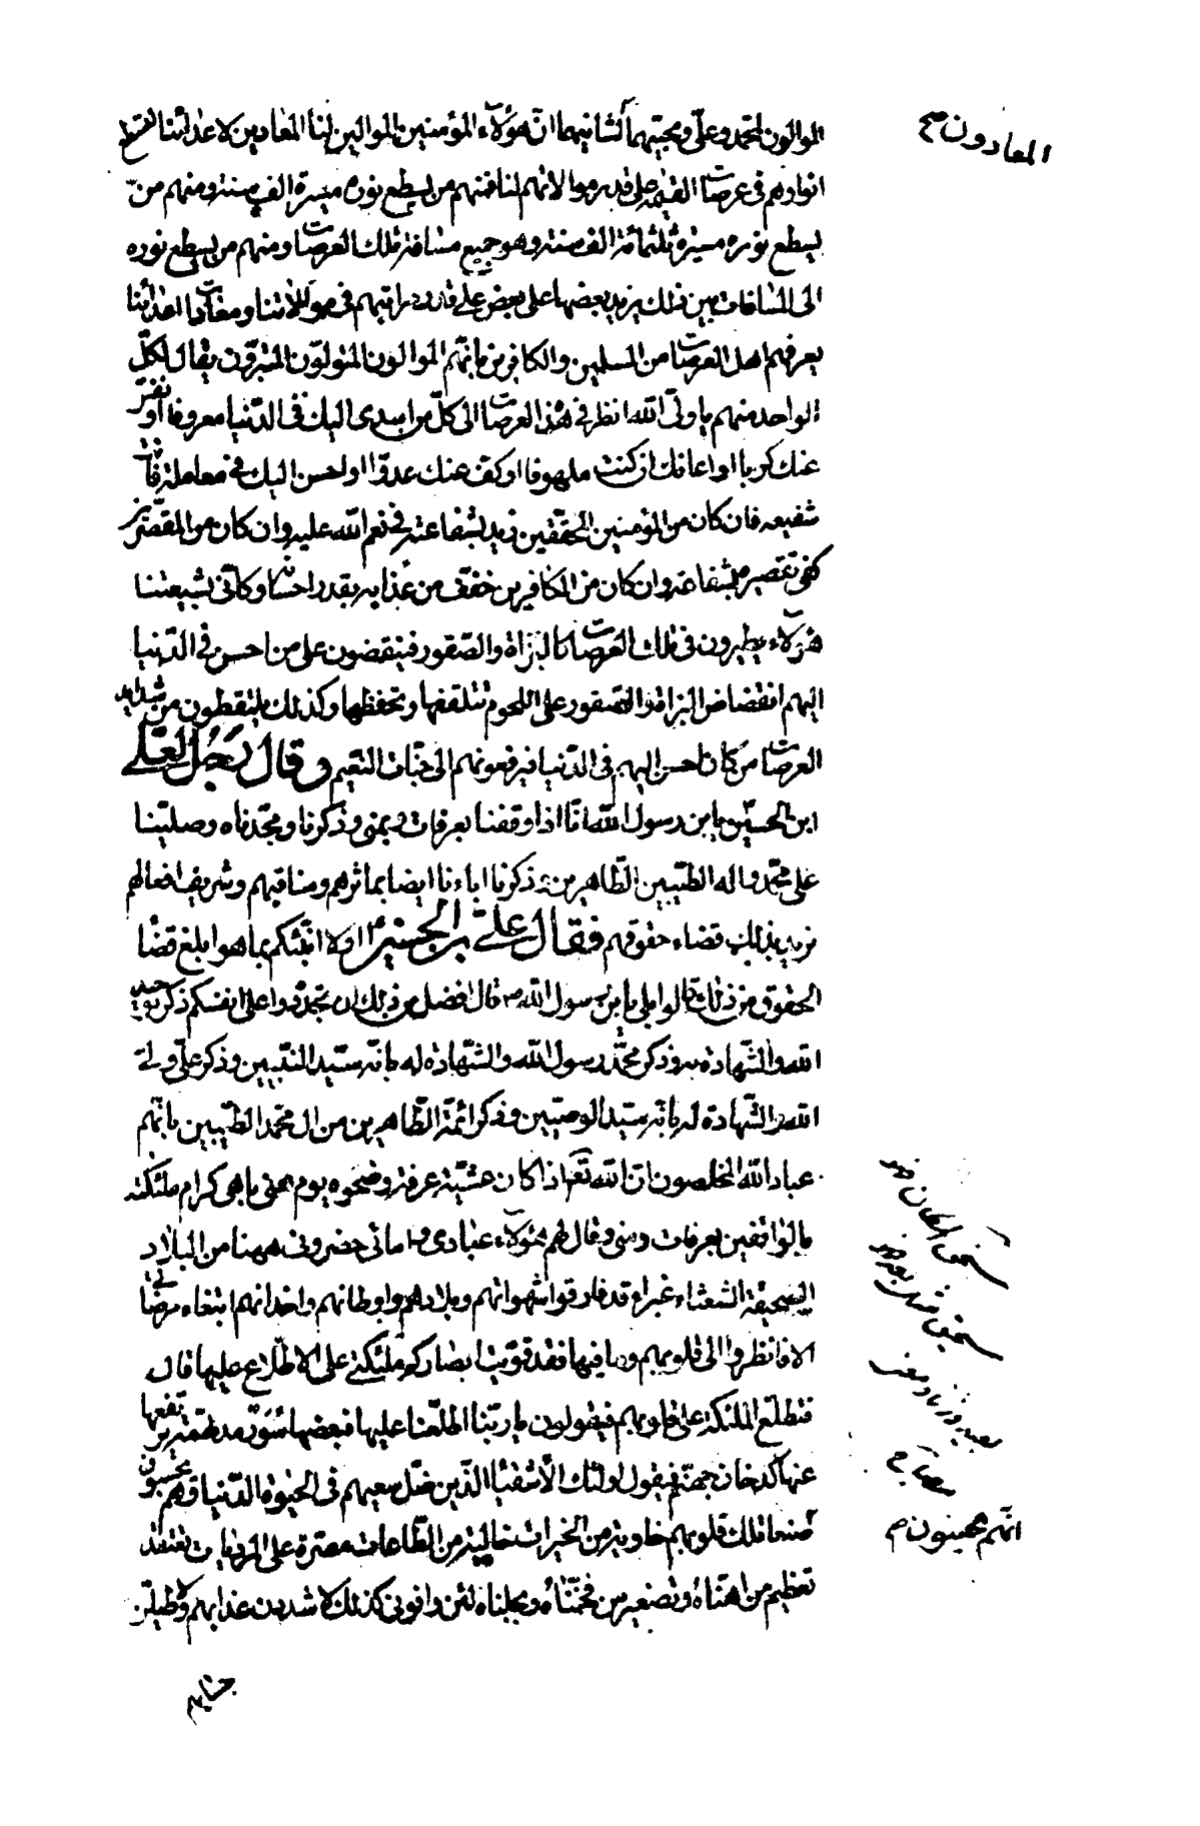 الموالون لمحمد وعلى ومحبيهما لشانيهما ان هؤلاء المؤمنين الموالين لنا المعادين لاعدائنا لتسطع
انوارهم في عرصات القيمة على قدر موالاتهم لنا فمنهم من يسطع نوره مسيرة الف سنة ومنهم من
يسطع نوره مسيرة ثلثمائة الف سنة وهو جميع مسافة تلك العرصات ومنهم من يسطع نوره
الى المسافات بين ذلك يزيد بعضها على بعض على قدر مراتبهم في موالاتنا ومعادات اعدائنا
يعرفهم اهل العرصات من المسلمين والكافرين بانهم الموالون المتولون المتبرؤن يقال لكل
الواحد منهم يا ولى الله انظر في هذا العرصات الى كل من اسدى اليك في الدنيا معروفا او نفس
عنك كربا او اعانك اذ كنت ملهوفا او كف عنك عدوا او احسن اليك في معاملة فانت
شفيعه فان كان من المؤمنين المحقين زيد بشفاعته في نعم الله عليه وان كان من المقصرين
كفى تقصيره بشفاعته وان كان من الكافرين خفف من عذابه بقدر احسانه وكانى بشيعتنا
هؤلاء يطيرون في تلك العرصات كالبزاة والصقور فينقضون على من احسن في الدنيا
اليهم انقضاض البزاة والصقور على اللحوم تتلقفها وتحفظها وكذلك يلتقطون من شدايد
العرصات من كان احسن اليهم في الدنيا فيرفعونهم الى جنات النعيم وقال رجل لعلى
ابن الحسين يابن رسول الله انا اذا وقفنا بعرفات وبمنى وذكرنا ومجدناه وصلينا
على محمد واله الطيبين الطاهرين ذكرنا اباءنا ايضا بماثرهم ومناقبهم وشريف افعالهم
نريد بذلك قضاء حقوقهم فقال على بن الحسين اولا انبئكم بما هو ابلغ في قضا
الحقوق من ذلك قالوا بلى يابن رسول الله ص قال افضل من ذلك ان تجددوا على انفسكم ذكر توحيد
الله والشهادة به وذكر محمد رسول الله والشهادة له بانه سيد النبيين وذكر على ولى
الله والشهادة له بانه سيد الوصيين وذكر ائمة الطاهرين من ال محمد الطيبين بانهم
عباد الله المخلصون ان الله تعالى اذا كان عشية عرفة وضحوة يوم بمنى باهى كرام ملئكته
بالواقفين بعرفات ومنى وقال لهم هؤلاء عبادى وامائى حضرونى ههنا من البلاد
السحيقة الشعثاء غبراء قد فارقوا شهواتهم وبلادهم واوطانهم واخدانهم ابتغاء مرضاتى
الا فانظروا الى قلوبهم وما فيها فقد قويت ابصاركم ملئكتى على الاطلاع عليها قال
فتطلع الملئكة على قلوبهم فيقولون يا ربنا اطلعنا عليها فبعضها سود مدلهمة يرتفع
عنها كدخان جهنم فيقول اولئك الاشقيا الذين ضل سعيهم في الحيوة الدنيا وهم يحسبون
صنعا تلك قلوبهم خاوية من الخيرات خالية من الطاعات مصرة على المرديات تعتقد
تعظيم من اهناه وتصغير من فخمناه وبجلناه لئن وافونى كذلك لاشددن عذابهم ولاطيلن
حسابهم
المعادون صح
انهم يحسنون ص